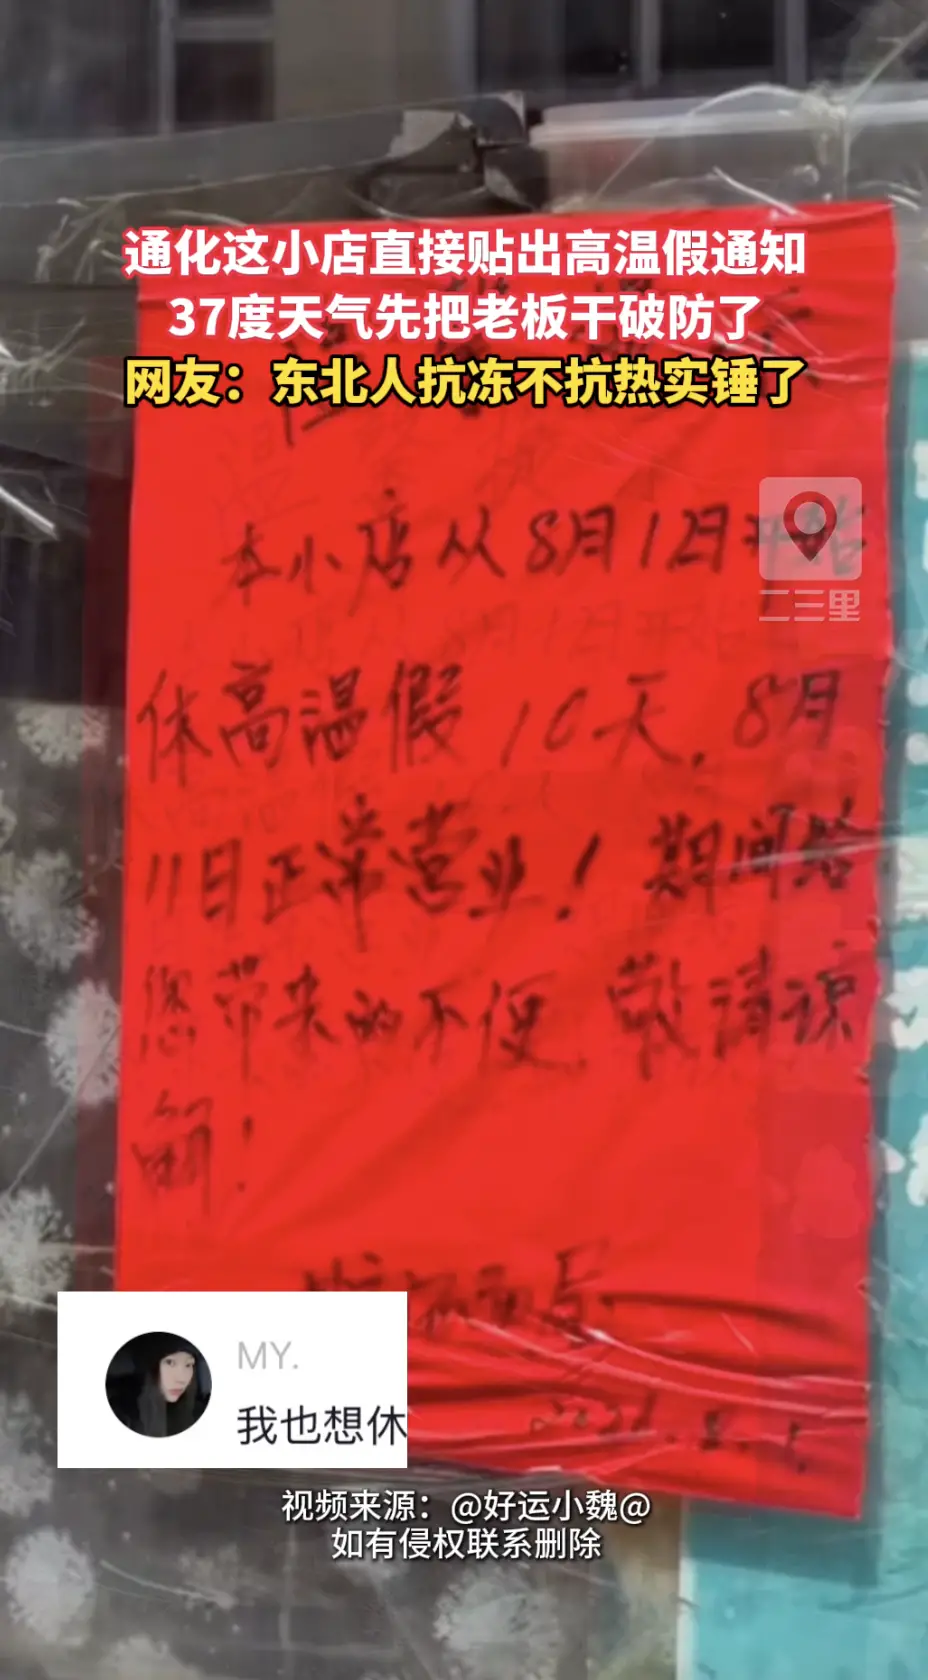 通化这小店直接贴出高温假通知
37度天气先把老板干破防了
网友：东北人抗冻不抗热实锤了
本小店从8月1日开始
二三里
休高温假10天.8月
11日正常营业！期间给
您带来的不便,敬请谅
解！
MY.
我也想休
视频来源：@好运小魏@
如有侵权联系删除